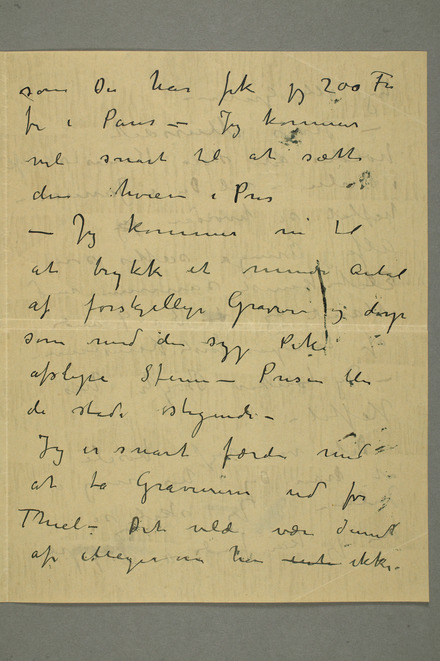 som De har fik jeg 200 Fr
fr i Paris – Jeg kommer
vel snart til at sætte
dem høiere i Pris
– Jeg kommer nu til
at trykk et mindre Antal
af forskjellige Graveri og derpå
som med den syge Pike
afslipe Stenen – Prisen blir
da stadi stigende –
Jeg er snart færdi med
at ta Graverierne ud for
Thiel – Det vilde være dumt
af Meyer om han ikke